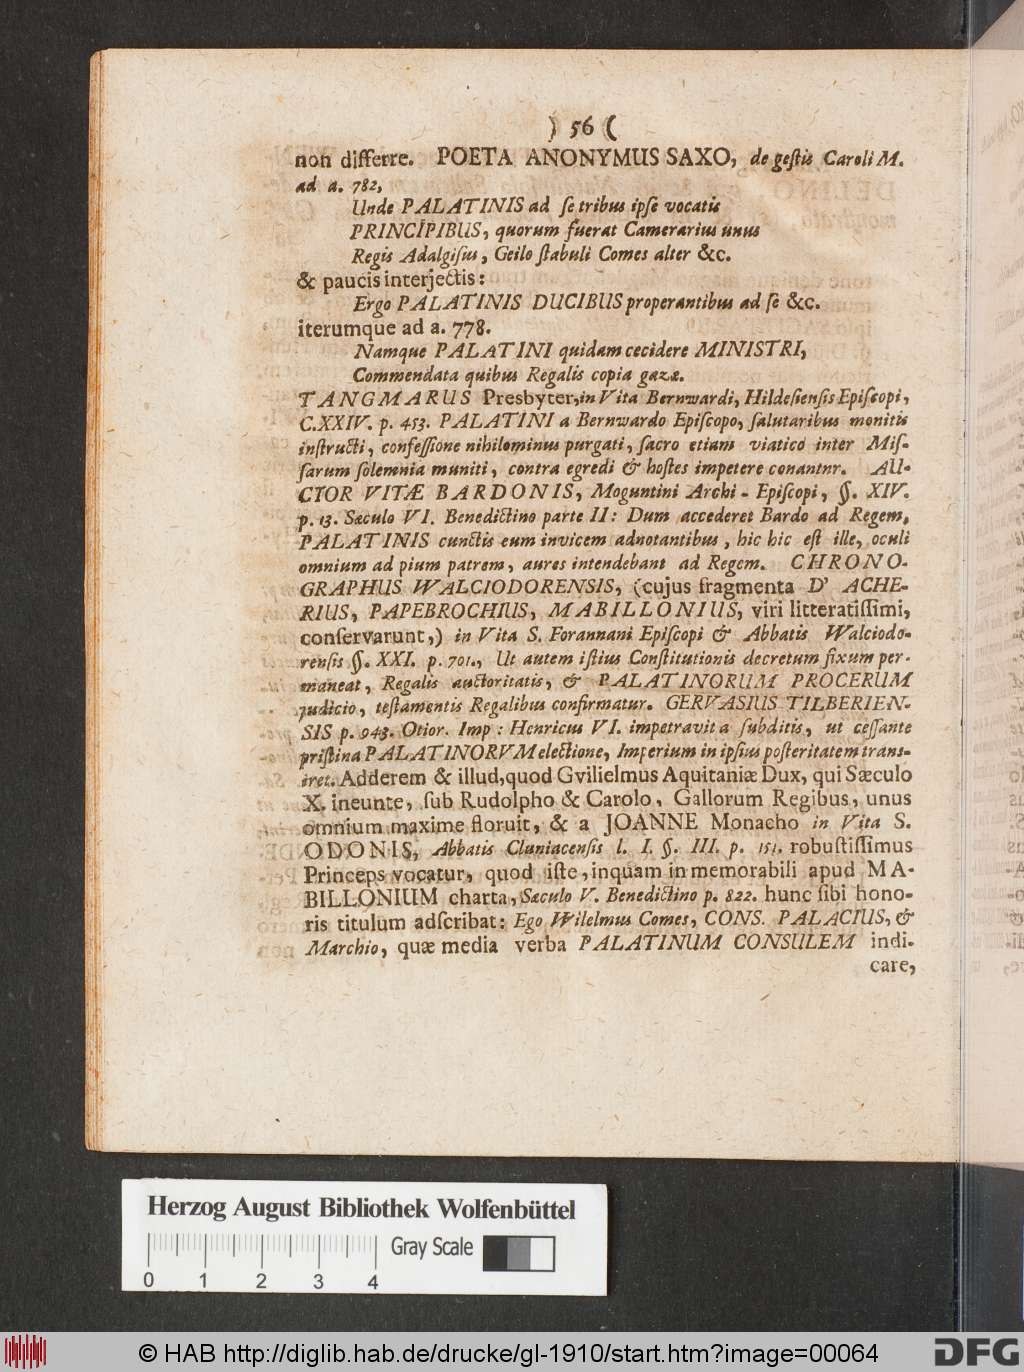 ) 56 (
non differre. POETA ANONYMUS SAXO, de gestis Caroli M.
ad a. 782,
Unde PALATINIS ad se tribus ipse vocatis
PRINCIPIBUS, quorum fuerat Camerarius unus
Regis Adalgisus, Geilo stabuli Comes alter &c.
& paucis interjectis:
Ergo PALATINIS DUCIBUS properantibus ad se &c.
iterumque ad a. 778.
Namque PALATINI quidam cecidere MINISTRI,
Commendata quibus Regalis copia gazæ.
TANGMARUS Presbyter, in Vita Bernwardi, Hildesiensis Episcopi,
C. XXIV. p. 453. PALATINI a Bernwardo Episcopo, salutaribus monitis
instructi, confessione nihilominus purgati, sacro etiam viatico inter Mis-
sarum solemnia muniti, contra egredi & hostes impetere conantnr. AU-
CTOR VITÆ BARDONIS, Moguntini Archi-Episcopi, §. XIV.
p. 13. Sæculo VI. Benedictino parte II: Dum accederet Bardo ad Regem,
PALATINIS cunctis eum invicem adnotantibus, hic hic est ille, oculi
omnium ad pium patrem, aures intendebant ad Regem. CHRONO-
GRAPHUS WALCIODORENSIS, (cujus fragmenta D' ACHE-
RIUS, PAPEBROCHIUS, MABILLONIUS, viri litteratissimi,
conservarunt,) in Vita S. Forannani Episcopi & Abbatis Walciodo-
rensis §. XXI. p. 701., Ut autem istius Constitutionis decretum fixum per-
maneat, Regalis auctoritatis, & PALATINORUM PROCERUM
judicio, testamentis Regalibus confirmatur. GERVASIUS TILBERIEN-
SIS p. 943. Otior. Imp: Henricus VI. impetravit a subditis, ut cessante
pristina PALATINORVM electione, Imperium in ipsius posteritatem trans-
iret. Adderem & illud, quod Gvilielmus Aquitaniæ Dux, qui Sæculo
X. ineunte, sub Rudolpho & Carolo, Gallorum Regibus, unus
omnium maxime floruit, & a JOANNE Monacho in Vita S.
ODONIS, Abbatis Cluniacensis l. I. §. III. p. 151. robustissimus
Princeps vocatur, quod iste, inquam in memorabili apud MA-
BILLONIUM charta, Sæculo V. Benedictino p. 822. hunc sibi hono-
ris titulum adscribat: Ego Wilelmus Comes, CONS. PALACIUS, &
Marchio, quæ media verba PALATINUM CONSULEM indi-
care,
Herzog August Bibliothek Wolfenbüttel
Gray Scale
0 1 2 3 4
© HAB http://diglib.hab.de/drucke/gl-1910/start.htm?image=00064
DFG